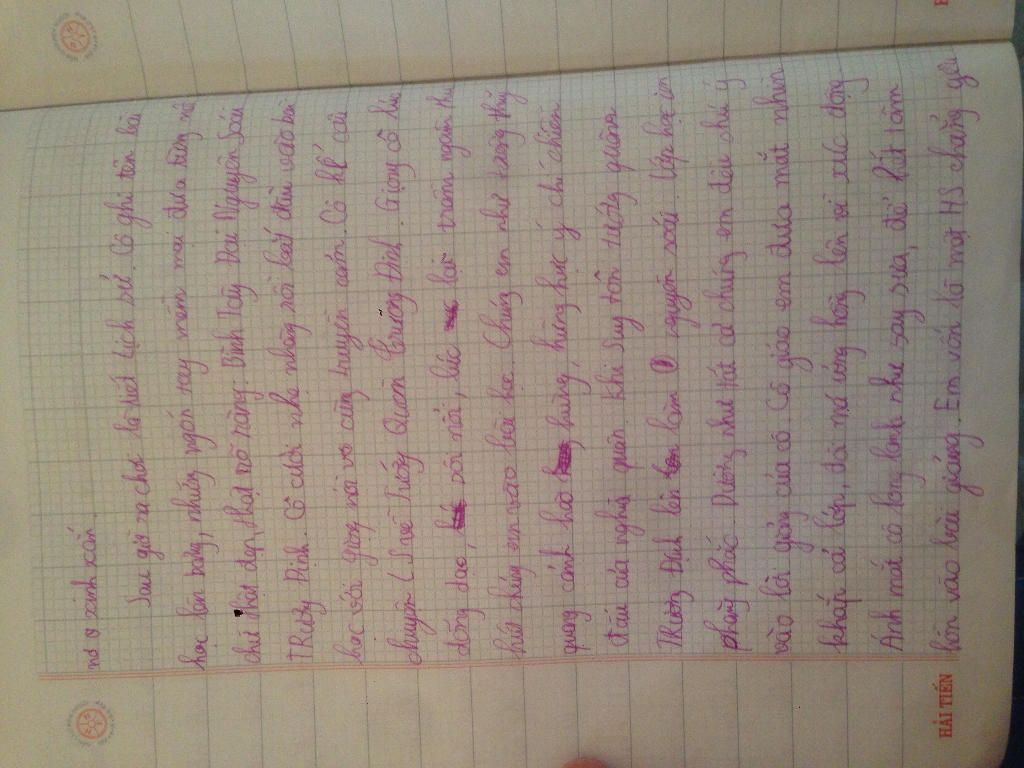 nơ xinh xắn.
Sau giờ ra chơi là tiết Lịch sử. Cô ghi tên bài
học lên bảng, những ngón tay mềm mại đưa từng nét
chữ thật đẹp, thật rõ ràng: Bình Tây Đại Nguyên Soái
TRương Định. Cô cười nhẹ nhàng rồi bắt đầu vào bài
học với giọng nói vô cùng truyền cảm. Cô kể câu
chuyện Tướng Quân Trương Định. Giọng cô hào
dõng dạc, sôi nổi, lúc lại trầm ngâm thu
hút chúng em vào bài học. Chúng em như trông thấy
quang cảnh hào hùng, hừng hực ý chí chiến
đấu của nghĩa quân khi suy tôn tướng quân
TRương Định lên làm nguyên soái. Lớp học im
phăng phắc. Dường như tất cả chúng em đều chú ý
vào lời giảng của cô. Cô giáo em đưa mắt nhìn
khắp cả lớp, đôi má ửng hồng lên vì xúc động
Ánh mắt cô long lanh như say sưa, để hết tâm
hồn vào bài giảng. Em vốn là một HS chẳng yêu
HẢI TIẾN